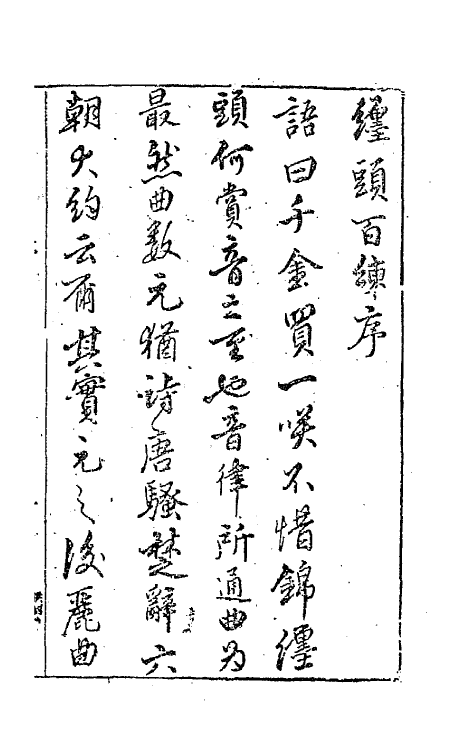 纏頭百練序
語曰千金買一咲不惜錦纏
頭何賞音之至也音律所通曲為
最然曲数元猶詩唐騷楚辭六
朝大約云爾其實元之後麗曲